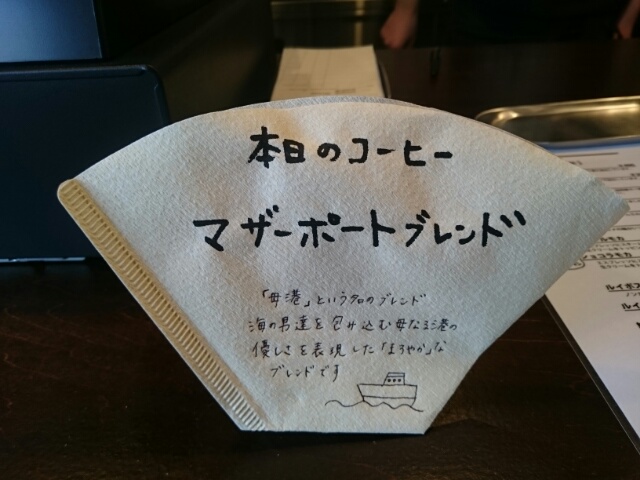 本日のコーヒー
マザーポートブレンド
「母港」という名のブレンド
海の男達を包み込む母なる港の
優しさを表現した「まろやか」な
ブレンドです
ショコラモカ